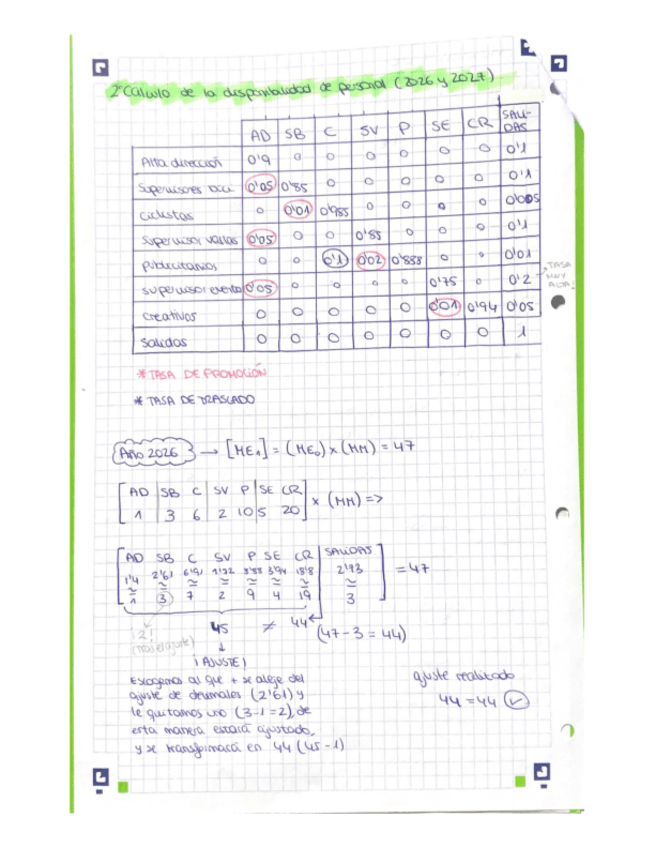 2º Cálculo de la disponibilidad de personal (2026 y 2027)
AD SB C SV P SE CR SALI-DAS
Alta dirección 0'9 0 0 0 0 0 0 0'1
Supervisores bici 0'05 0'85 0 0 0 0 0 0'1
Ciclistas 0 0'01 0'985 0 0 0 0 0'005
Supervisor vallas 0'05 0 0 0'85 0 0 0 0'1
Publicitarios 0 0 0'1 0'02 0'888 0 0 0'01
Supervisor evento 0'05 0 0 0 0 0'75 0 0'2
TASA MUY ALTA!
Creativos 0 0 0 0 0 0'01 0'94 0'05
Salidas 0 0 0 0 0 0 0 1
* TASA DE PROMOCIÓN
* TASA DE TRASLADO
Año 2026 → [ME₁] = (ME₀) x (MM) = 47
AD SB C SV P SE CR
1 3 6 2 10 5 20 x (MM) =>
AD SB C SV P SE CR SALIDAS
1'4 2'61 6'91 1'92 8'88 3'94 18'8 2'93 = 47
≃ ≃ ≃ ≃ ≃ ≃ ≃ ≃
1 3 7 2 9 4 19 3
¡2! (tras el ajuste)
45 ≠ 44 (47-3 = 44)
↓
¡AJUSTE!
Escogemos al que + se aleje del
ajuste de decimales (2'61) y
le quitamos uno (3-1=2), de
esta manera estará ajustado,
y se transformará en 44 (45-1)
ajuste realizado
44 = 44